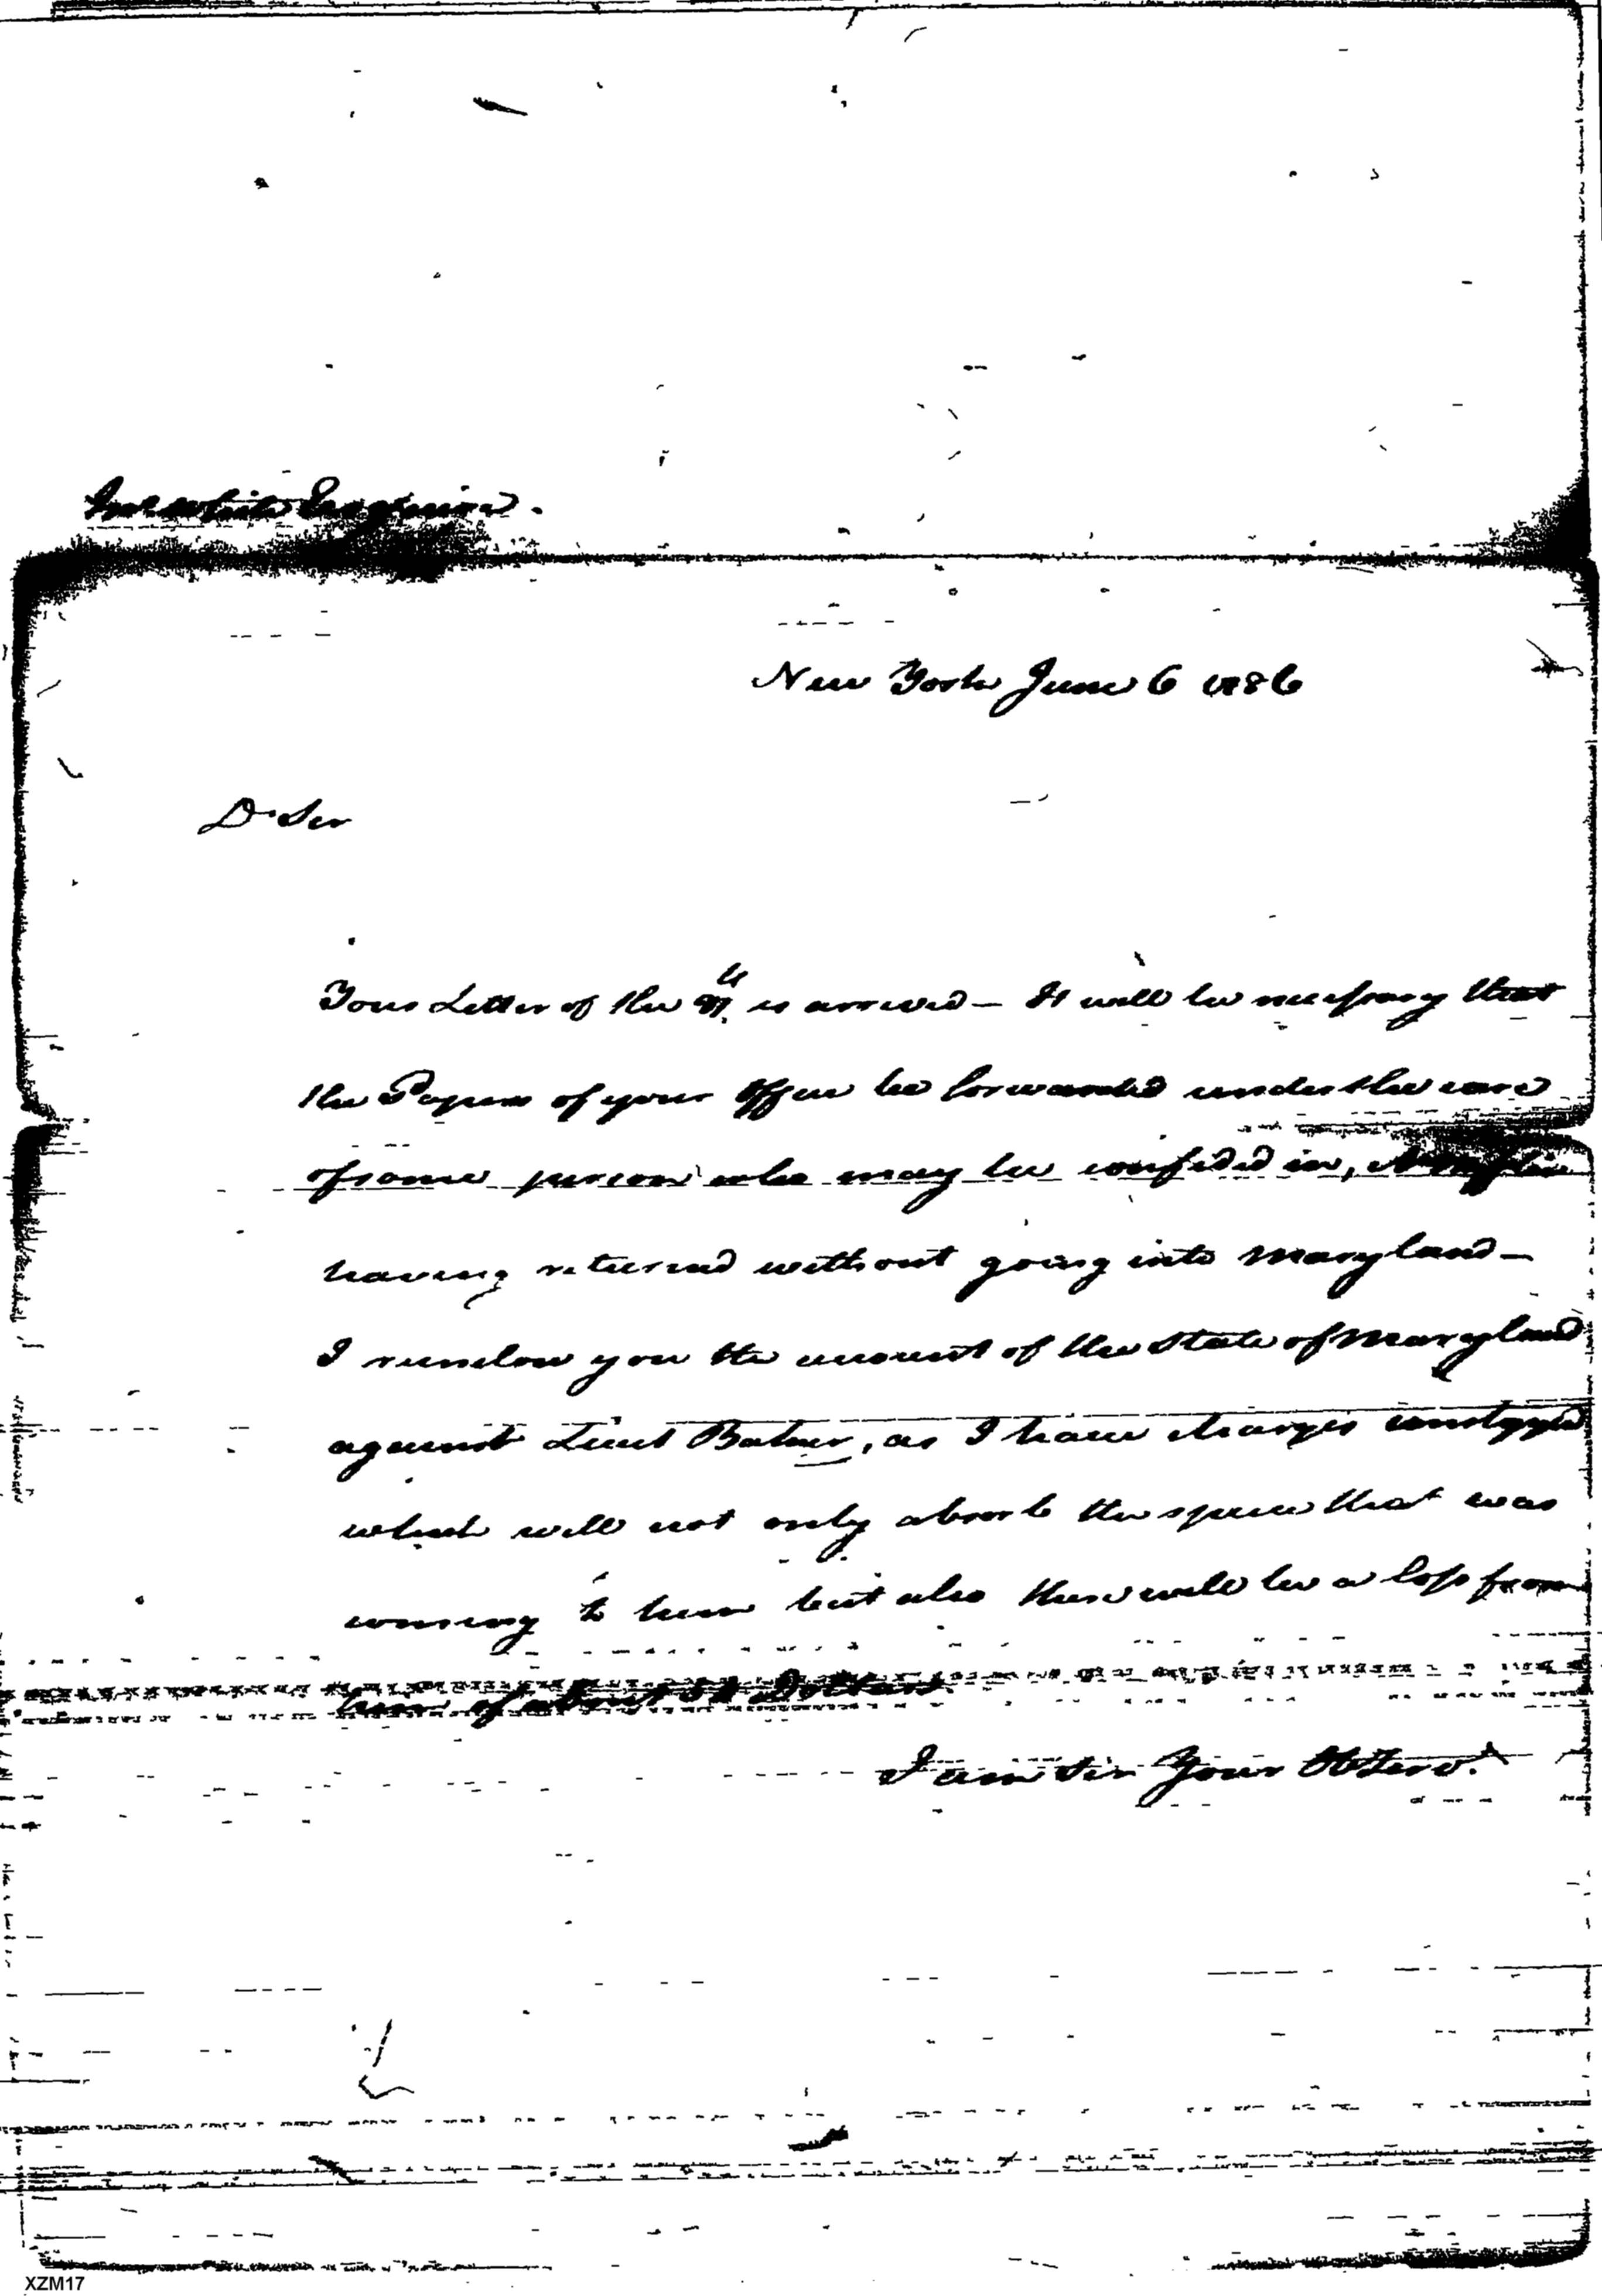 White Esquire.
New York June 6 1786
Dr Sir
Your Letter of the is arrived — It will be necessary that
the Papers of your Office be forwarded under the care
of some person who may be confided in,
having returned without going into Maryland —
I enclose you the amount of the State of Maryland
against Lieut , as I have charges
which will not only absorb the specie that was
coming to him but also there will be a loss from
him of about Dollars
I am Sir Your Ob Serv.t
XZM17